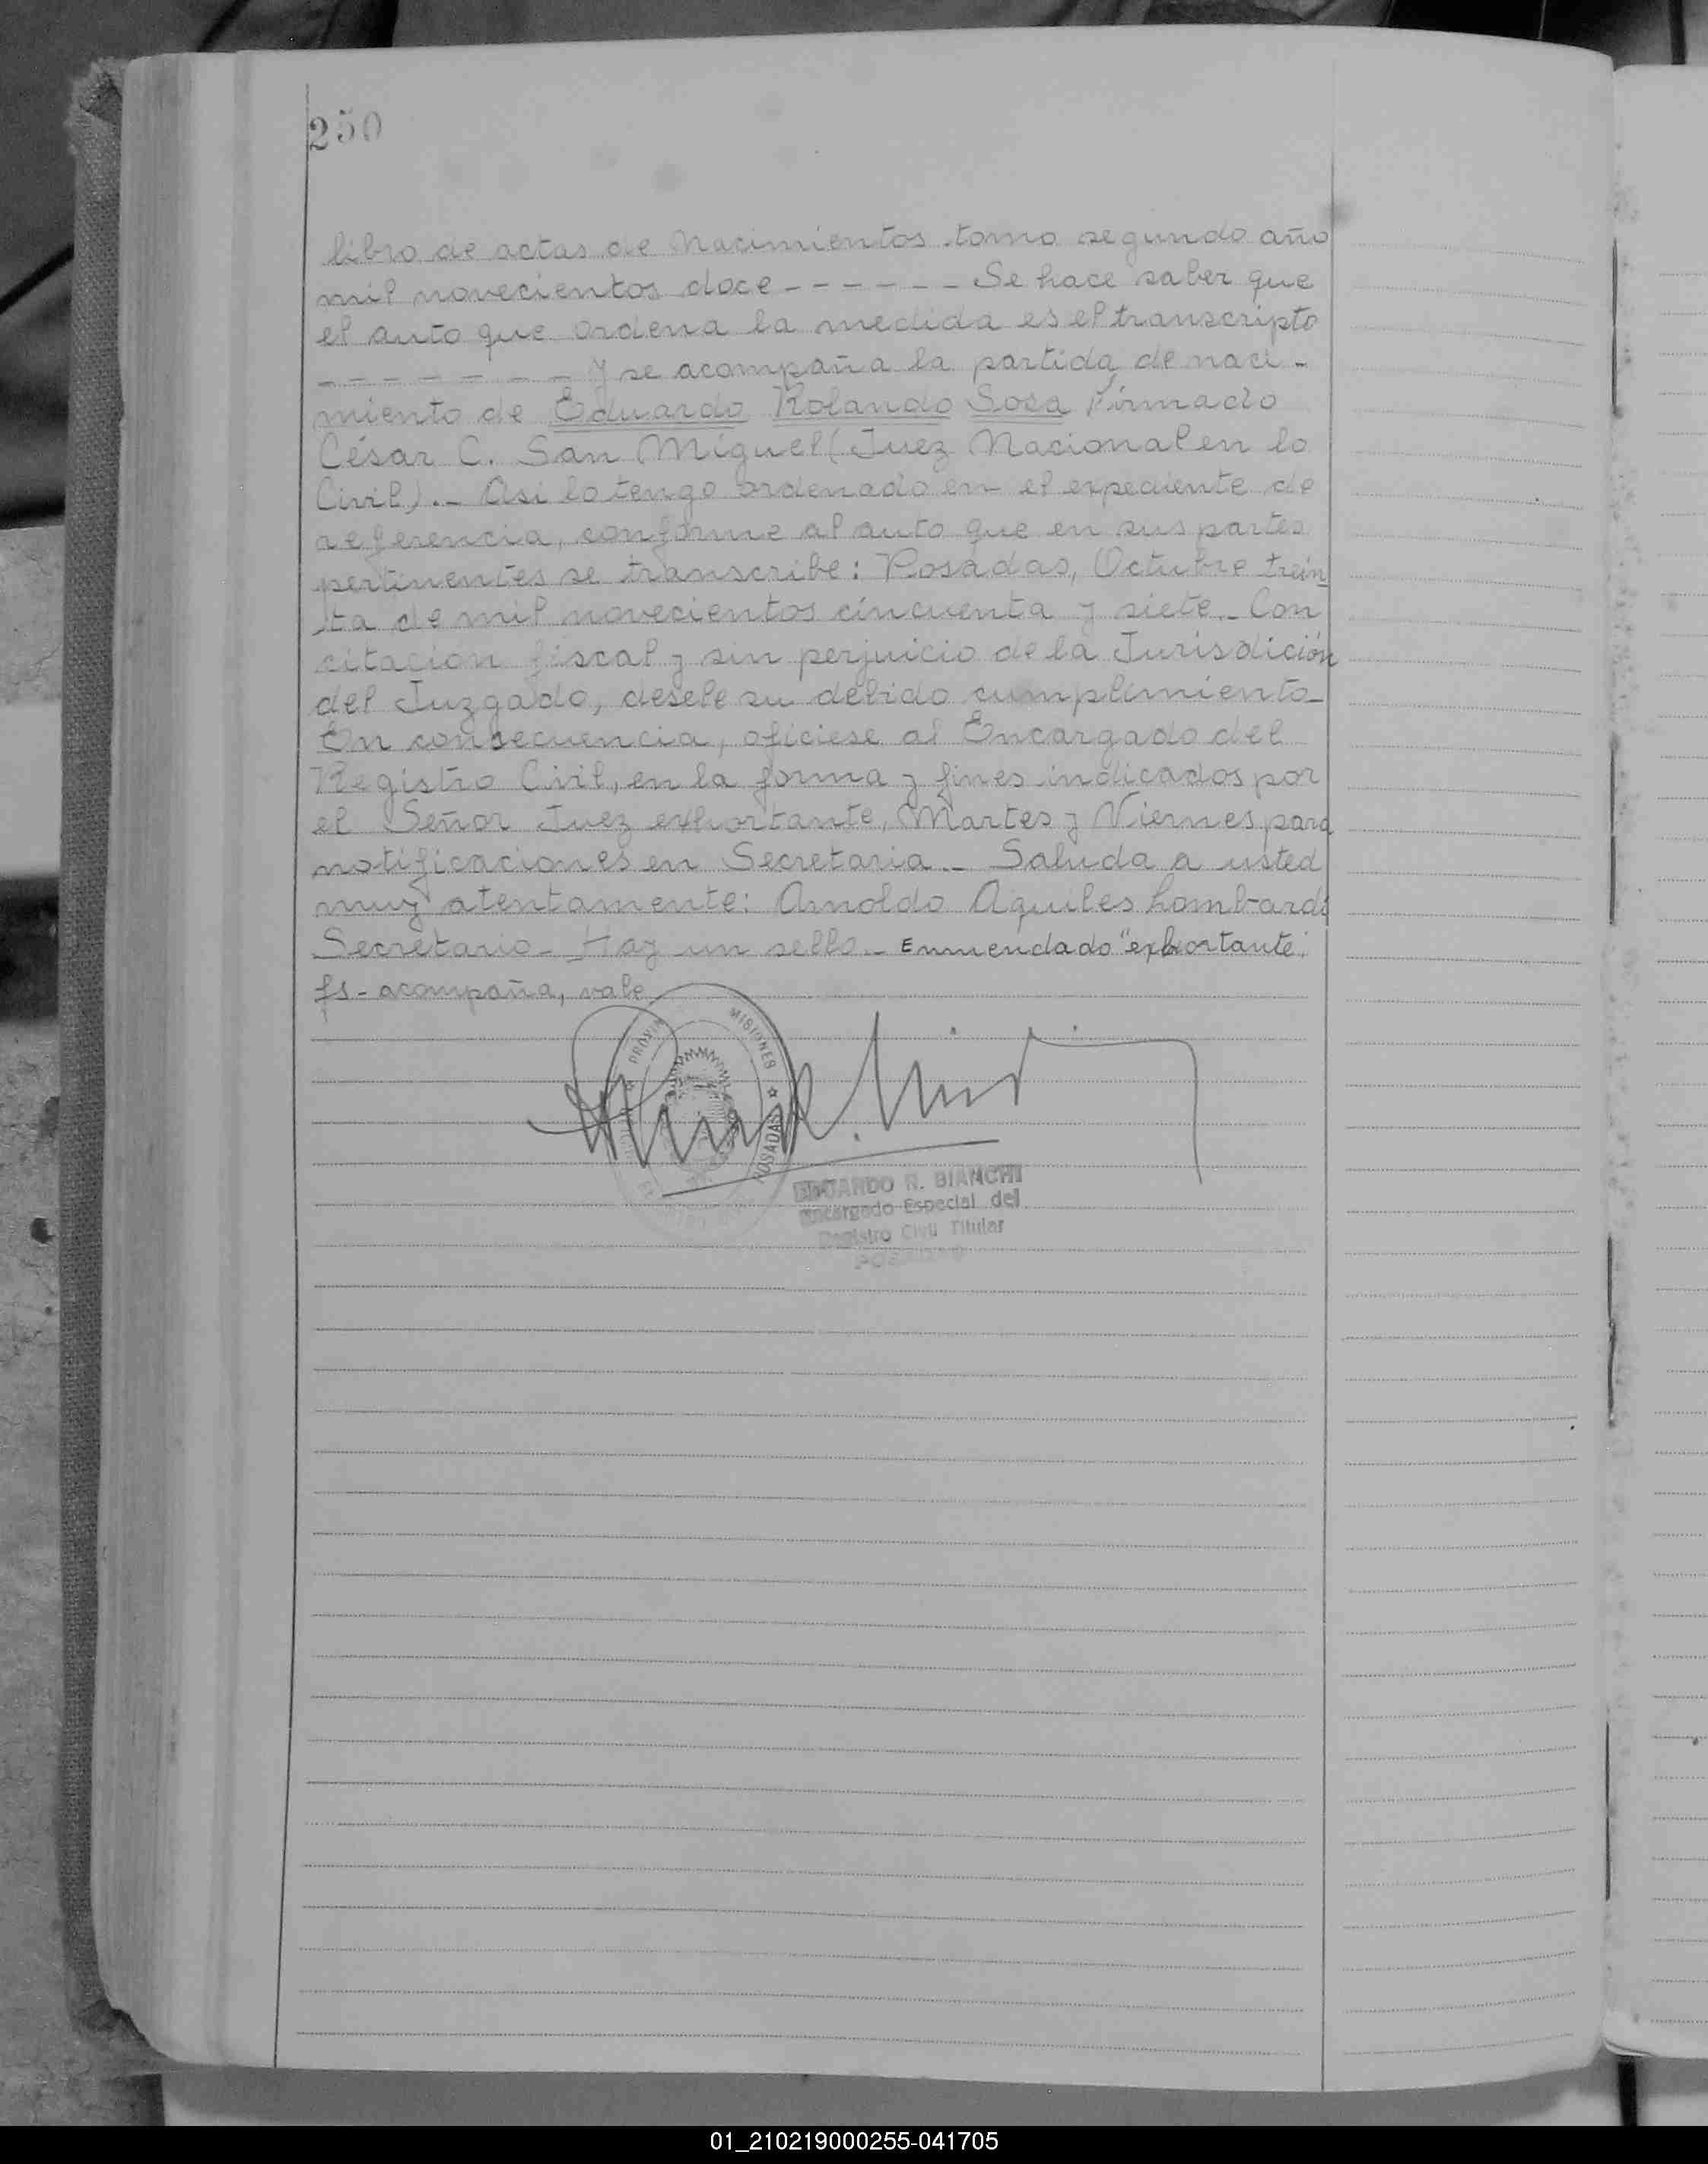 250
libro de actas de Nacimientos tomo segundo año
mil novecientos doce - - - - - - Se hace saber que
el auto que ordena la medida es el transcripto
- - - - - - - - y se acompaña la partida de naci-
miento de Eduardo Rolando Sosa Firmado
César C. San Miguel (Juez Nacional en lo
Civil)._ Asi lo tengo ordenado en el expediente de
referencia, conforme al auto que en sus partes
pertinentes se transcribe: Posadas, Octubre trein
ta de mil novecientos cincuenta y siete._ Con
citacion fiscal y sin perjuicio de la Jurisdición
del Juzgado, desele su debido cumplimiento_
En consecuencia, oficiese al Encargado del
Registro Civil, en la forma y fines indicados por
el Señor Juez exhortante, Martes y Viernes para
notificaciones en Secretaria._ Saluda a usted
muy atentamente: Arnoldo Aquiles Lombardi
Secretario_ Hay un sello._ Enmendado "exhortante"
fs - acompaña, vale
MISIONES
POSADAS
EDUARDO R. BIANCHI
Encargado Especial del
Registro Civil Titular
01_210219000255-041705